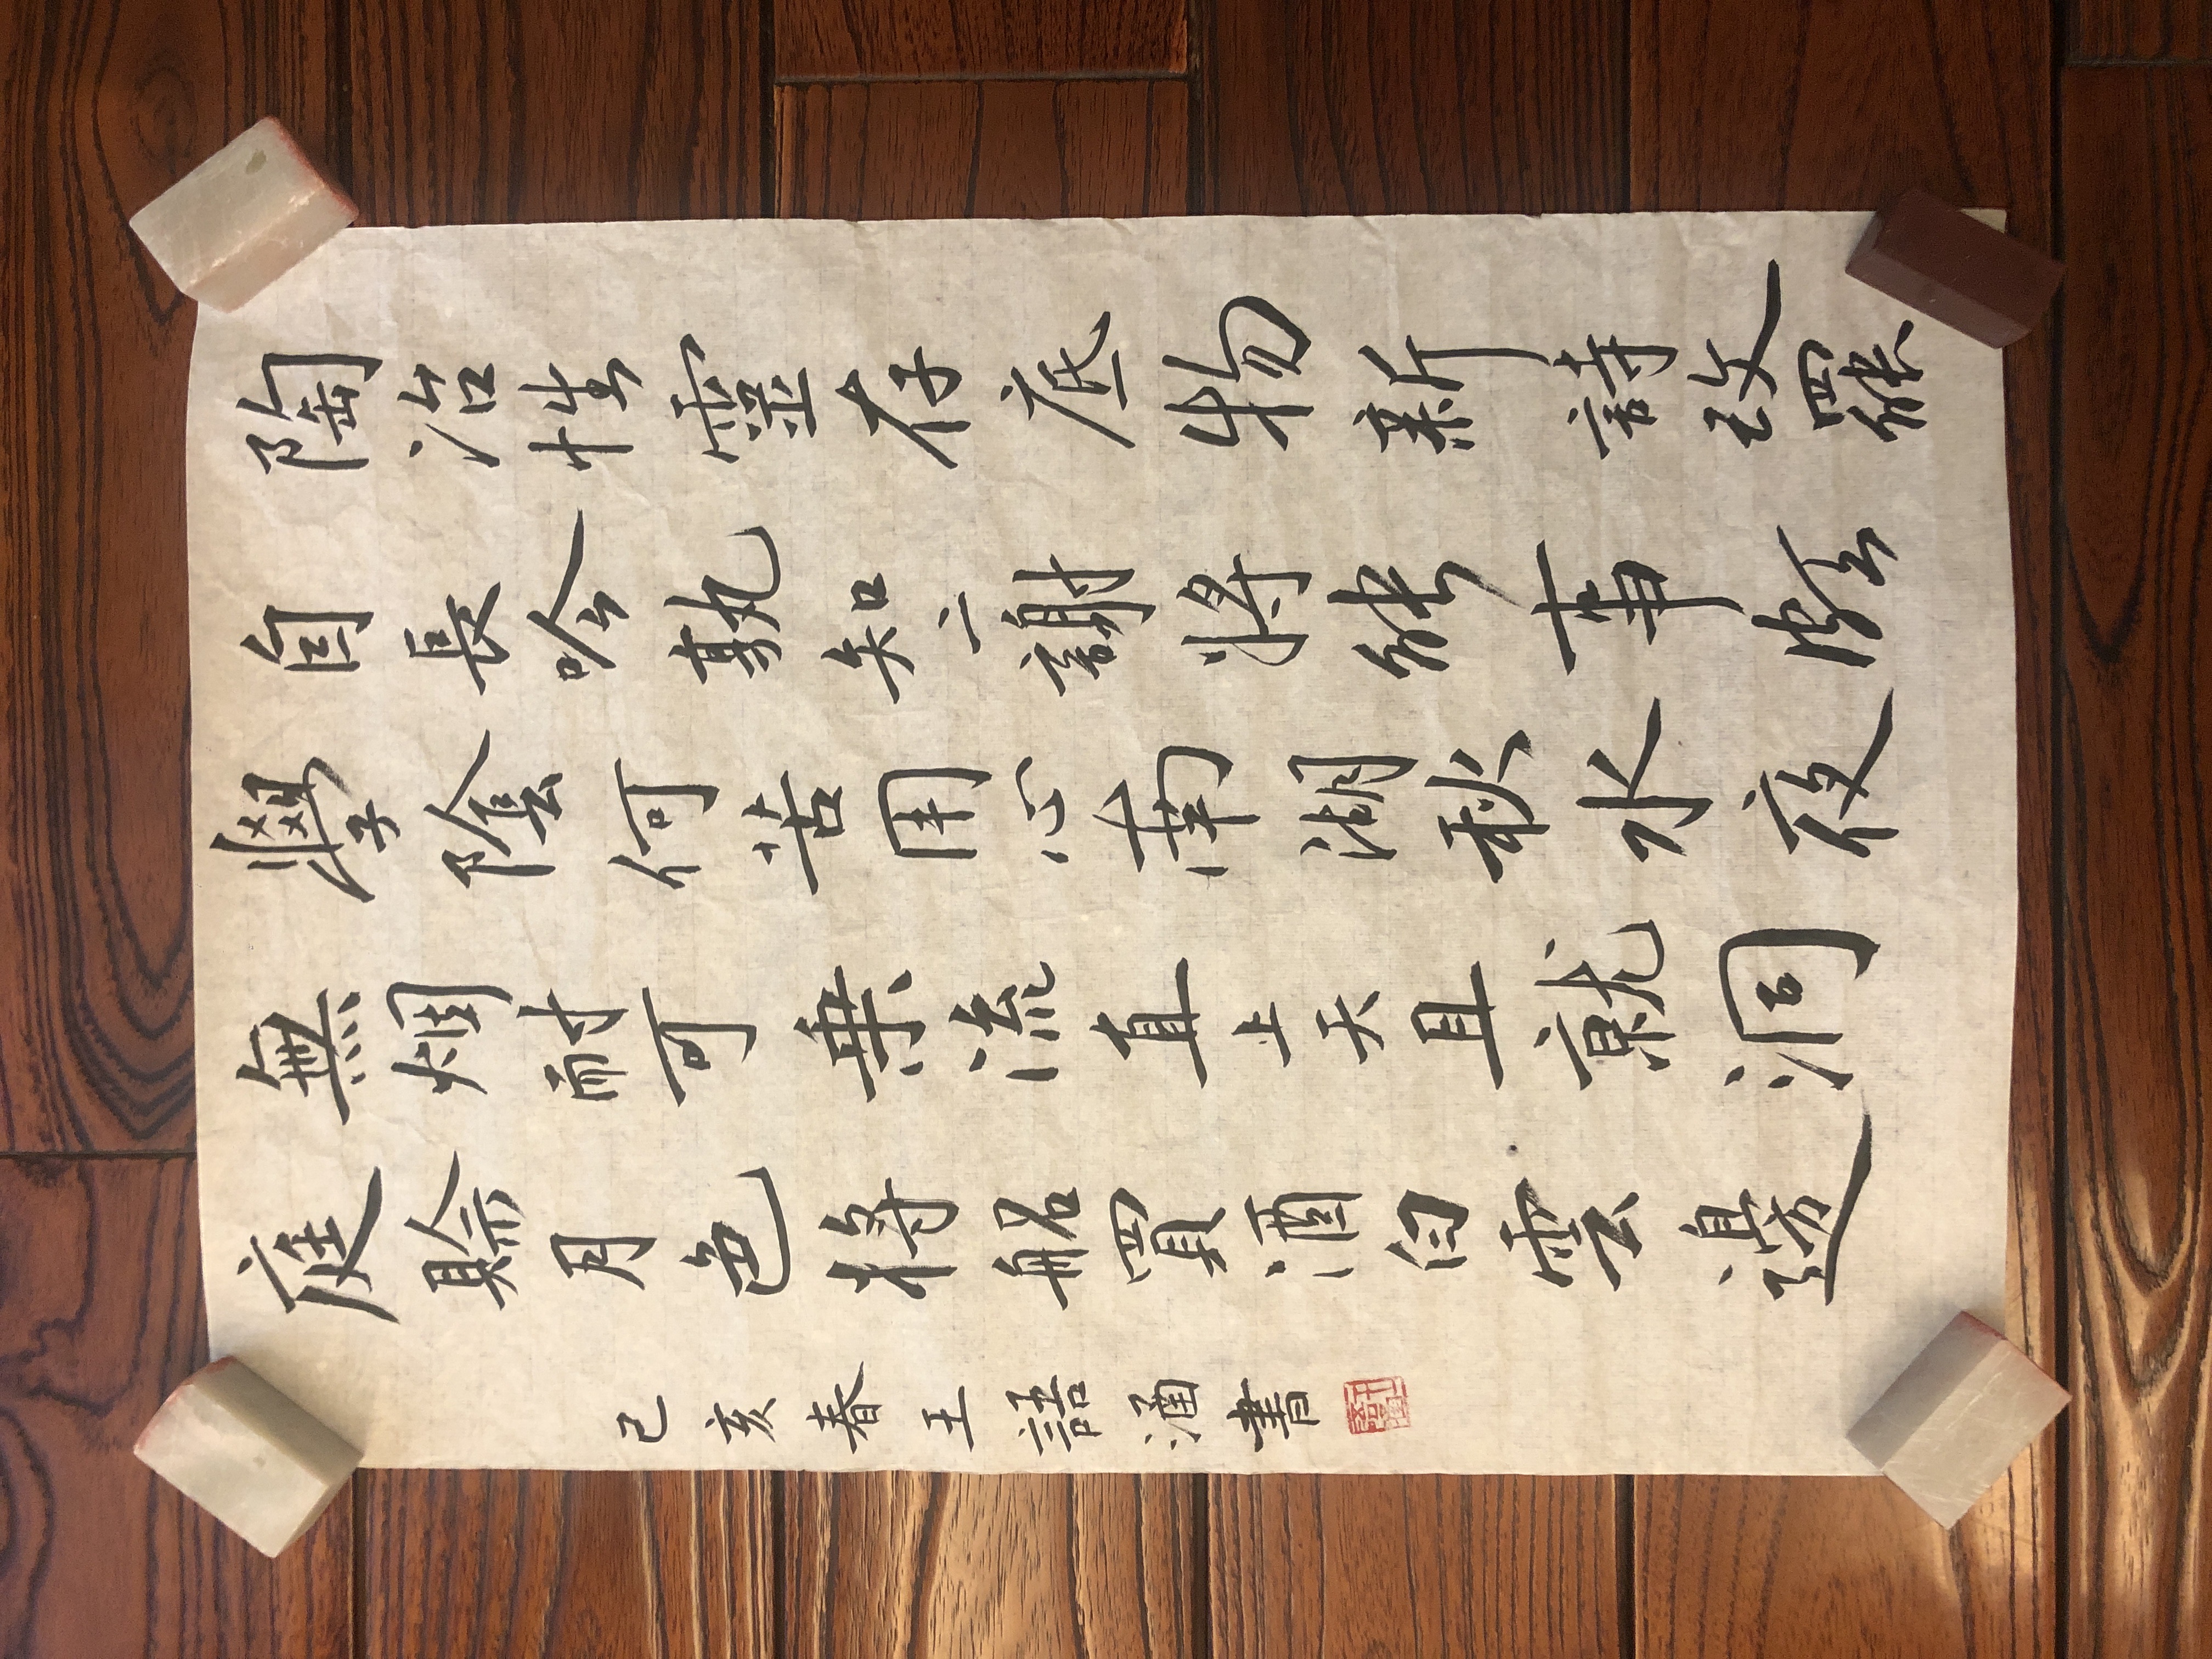 陶冶性靈存底物新詩改罷
自長吟孰知二謝將能事頗
學陰何苦用心南湖秋水夜
無烟耐可乗流直上天且就洞
庭賒月色將船買酒白雲邊
己亥春王語涌書